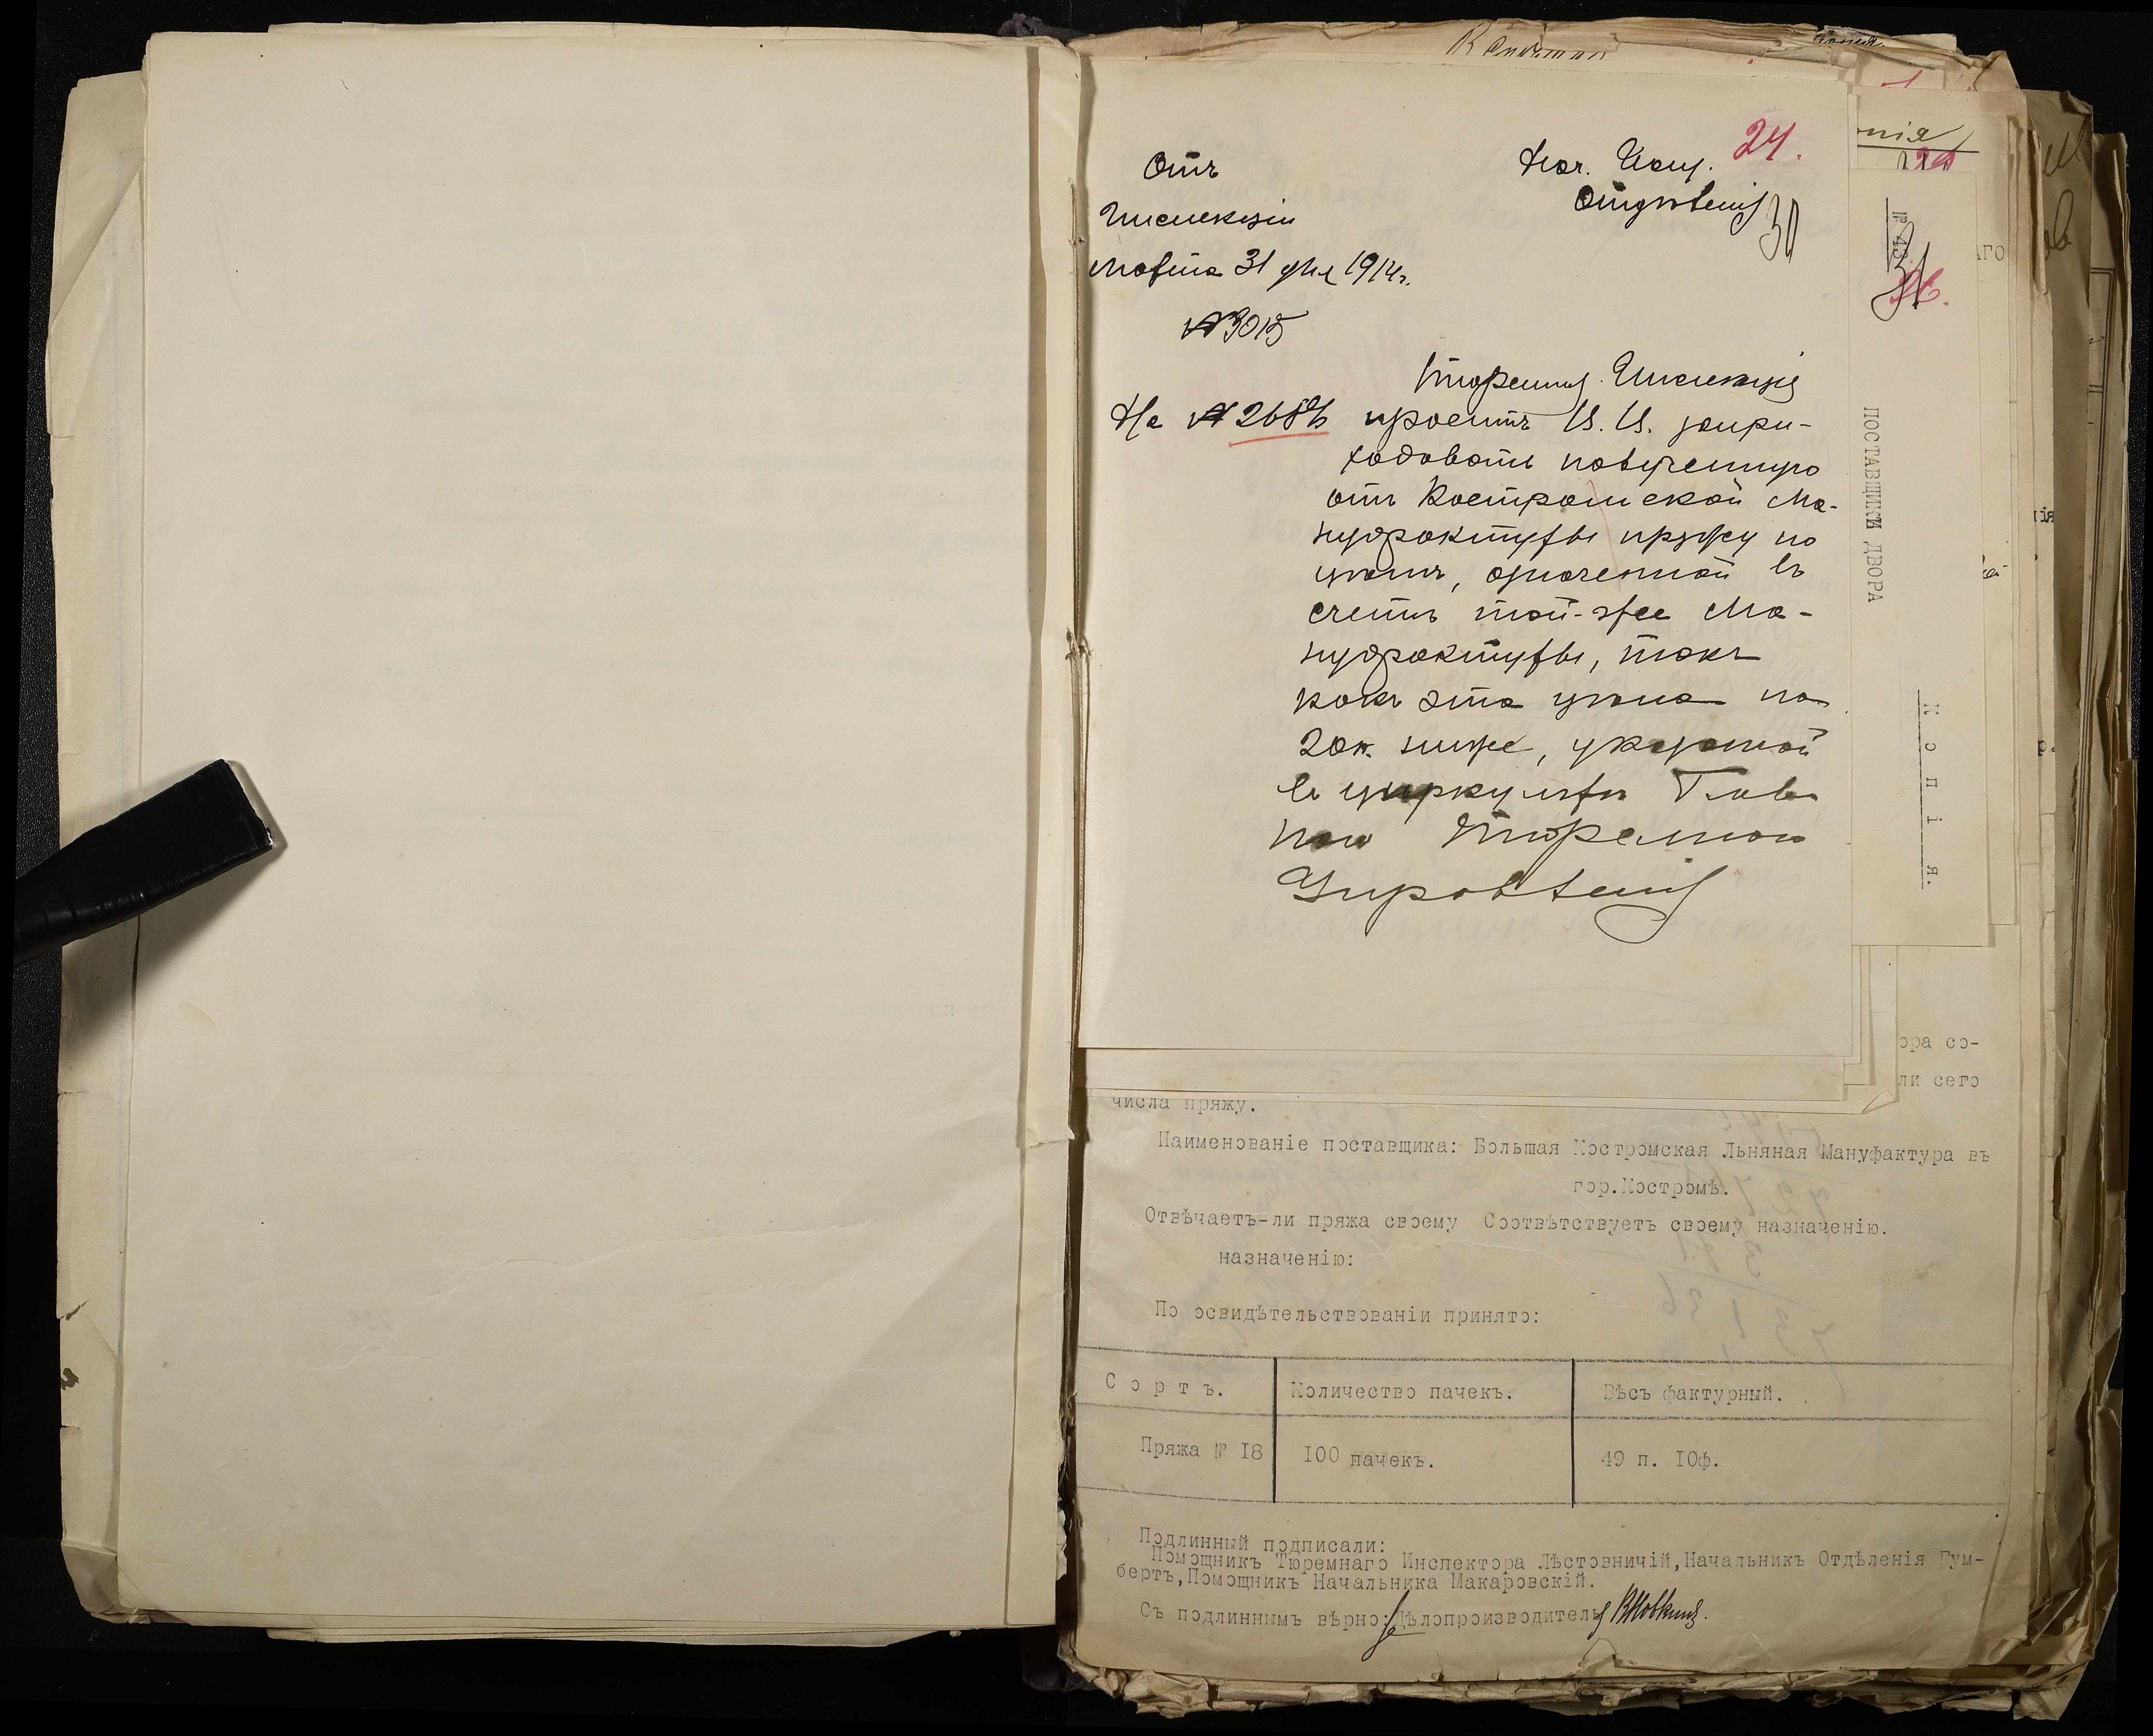 24.
Отъ
Инспекціи
Марта 31 дня 1914г.
№ 3015
Нач. Исп.
Отдѣленія
30
Тюремная Инспекція
На № 2686 проситъ И. И. заприходовать
ходовать полученную
отъ Костромской Ма-
нуфактуры пряжу по
цѣнѣ, означенной въ
счетѣ той-же Ма-
нуфактуры, такъ
какъ эта цѣна на
20к. ниже, указанной
въ циркулярѣ Глав
ной Тюремной
Управленія
нія
№ 45
31
26.
ПОСТАВЩИКИ ДВОРА
К о п і я.
аго
ора со-
ли сего
числа пряжу.
Наименованіе поставщика: Большая Костромская Льняная Мануфактура въ
гор.Костромѣ.
Отвѣчаетъ-ли пряжа своему Соотвѣтствуетъ своему назначенію.
назначенію:
По освидѣтельствованіи принято:
С о р т ъ. Количество пачекъ. Вѣсъ фактурный.
Пряжа № I8 I00 пачекъ. 49 п. I0ф.
Подлинный подписали:
Помощникъ Тюремнаго Инспектора Лѣстовничій,Начальникъ Отдѣленія Гум-
бертъ,Помощникъ Начальника Макаровскій.
Съ подлиннымъ вѣрно: Дѣлопроизводитель